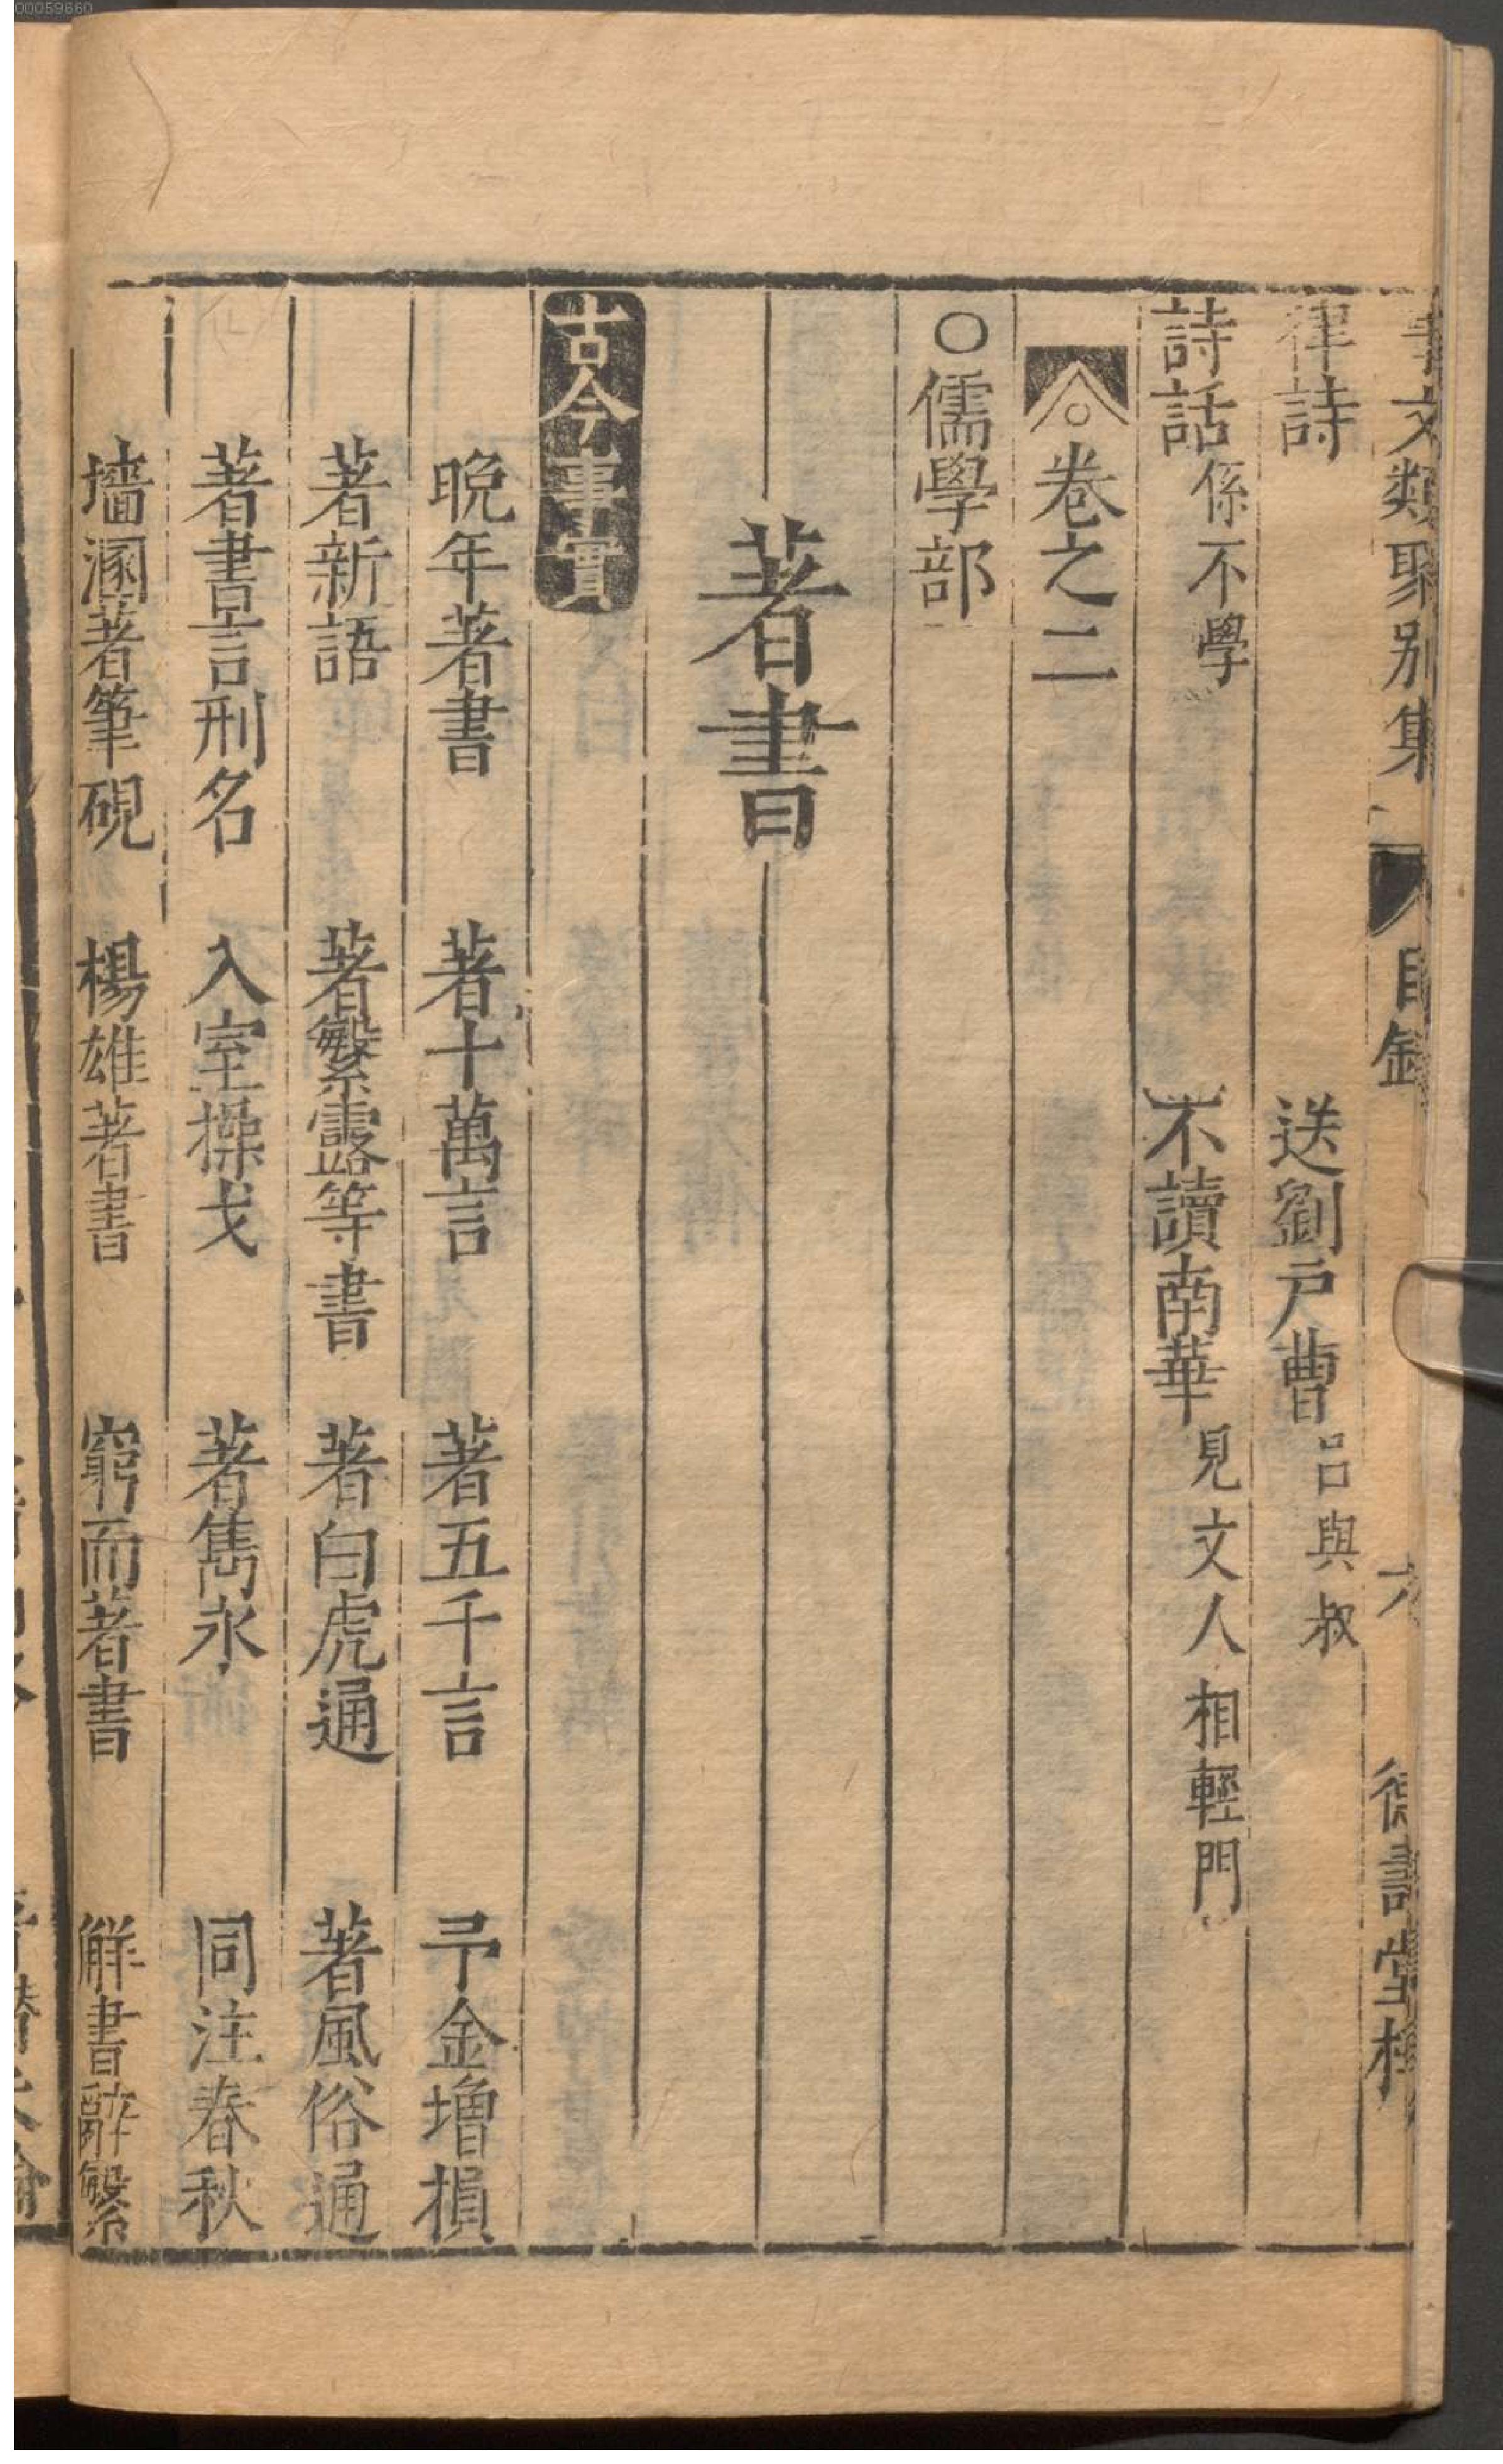 文類聚别集 目録 六 德壽堂梓
律詩 送劉户曹 吕與叔
詩話 係不學 不讀南華 見文人相輕門
卷之二
○儒學部
著書
古今事實
晩年著書 著十萬言 著五千言 予金増損
著新語 著繁露等書 著白虎通 著風俗通
著書言刑名 入室操戈 著雋永 同注春秋
墻溷著筆硯 楊雄著書 窮而著書 觧書辭繁
00059660